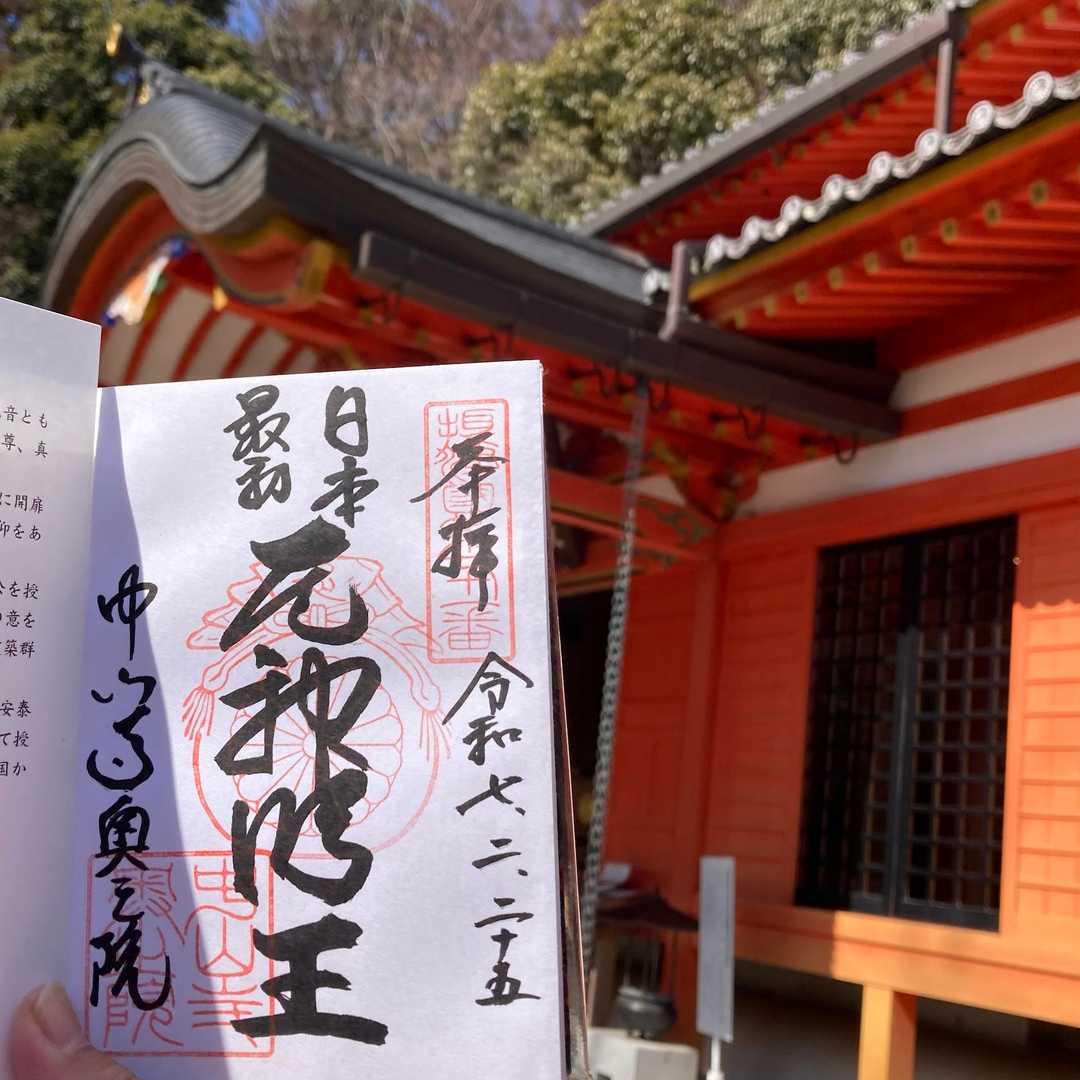 音とも
尊、真
に開扉
仰をあ
を授
意を
築群
安泰
て授
国か
奉拝
令和七、二、二十五
日本
最初
厄神明王
中山寺奥之院